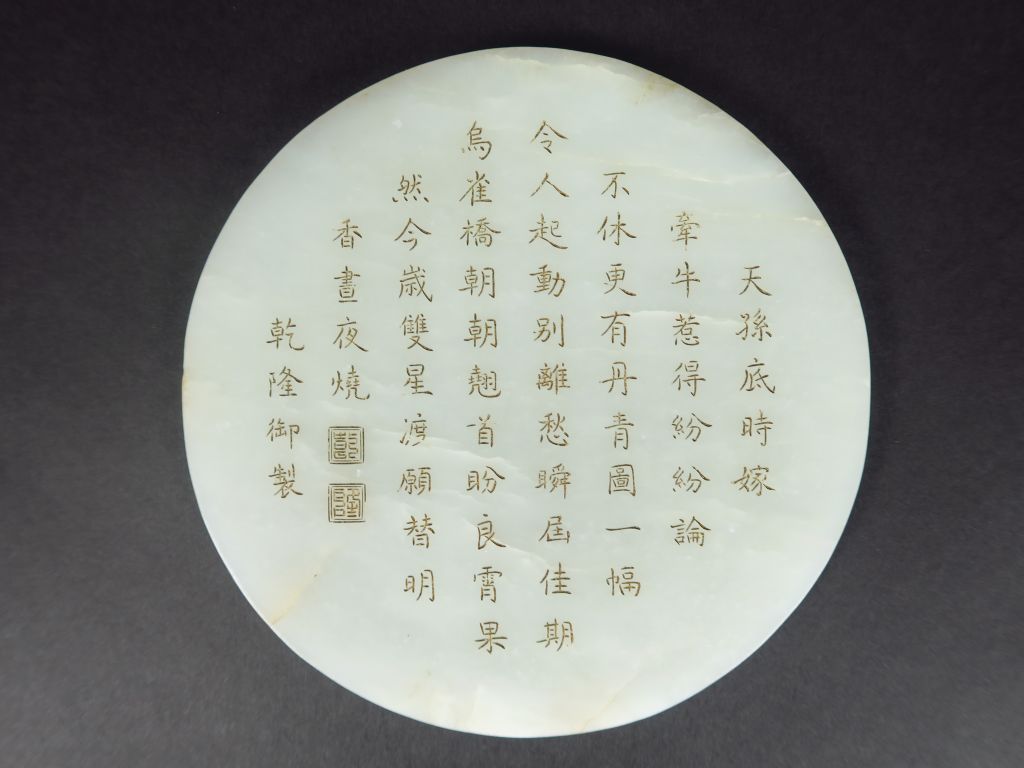 天孫底時嫁
牽牛惹得紛紛論
不休更有丹青圖一幅
令人起動别離愁瞬屆佳期
烏雀橋朝朝翹首盼良霄果
然今歲雙星渡願替明
香晝夜燒
乾隆
乾隆御製